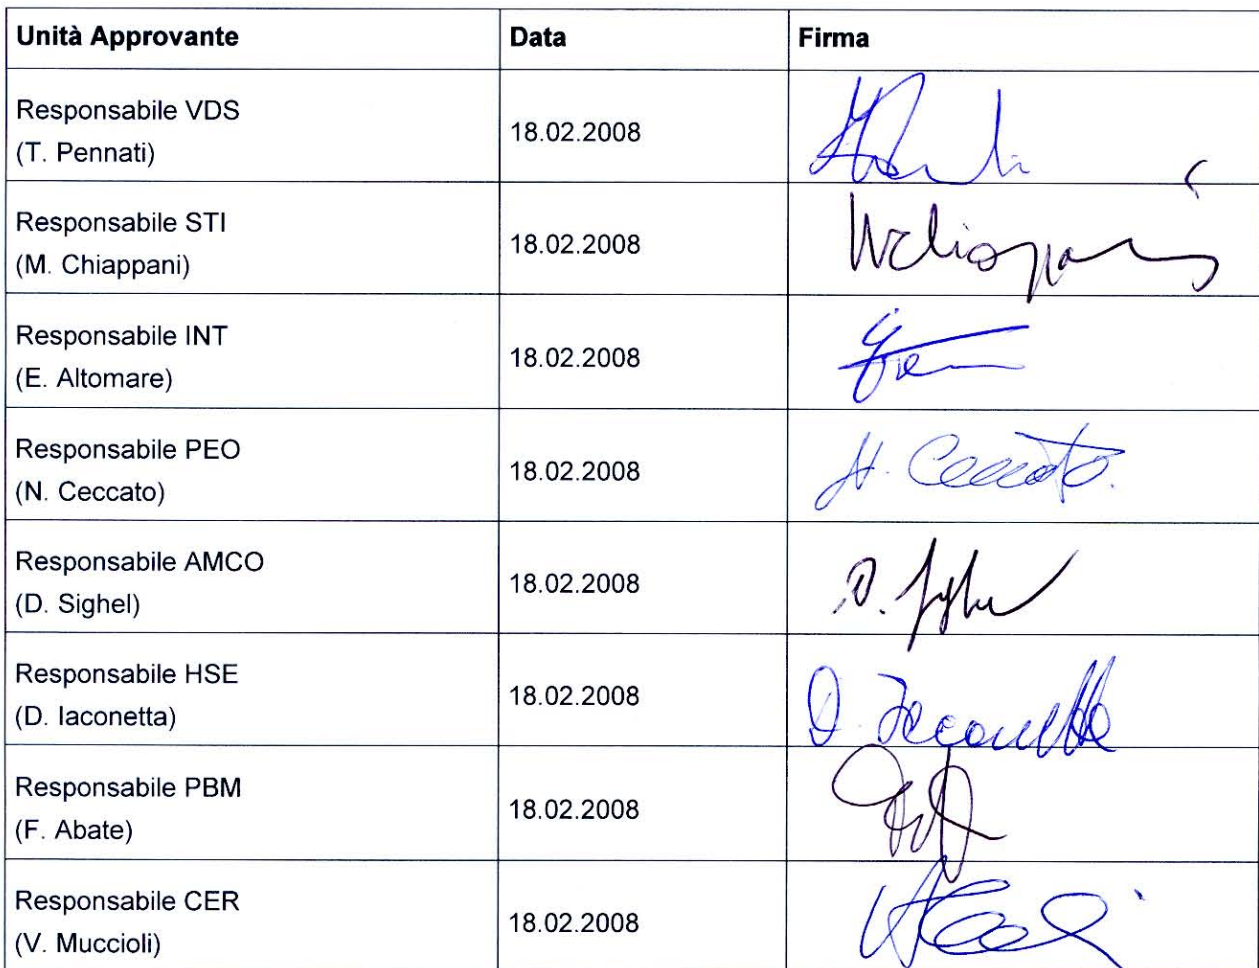 Unità Approvante Data Firma
Responsabile VDS
(T. Pennati) 18.02.2008
Responsabile STI
(M. Chiappani) 18.02.2008
Responsabile INT
(E. Altomare) 18.02.2008
Responsabile PEO
(N. Ceccato) 18.02.2008 N. Ceccato.
Responsabile AMCO
(D. Sighel) 18.02.2008
Responsabile HSE
(D. Iaconetta) 18.02.2008 D. Iaconetta
Responsabile PBM
(F. Abate) 18.02.2008
Responsabile CER
(V. Muccioli) 18.02.2008